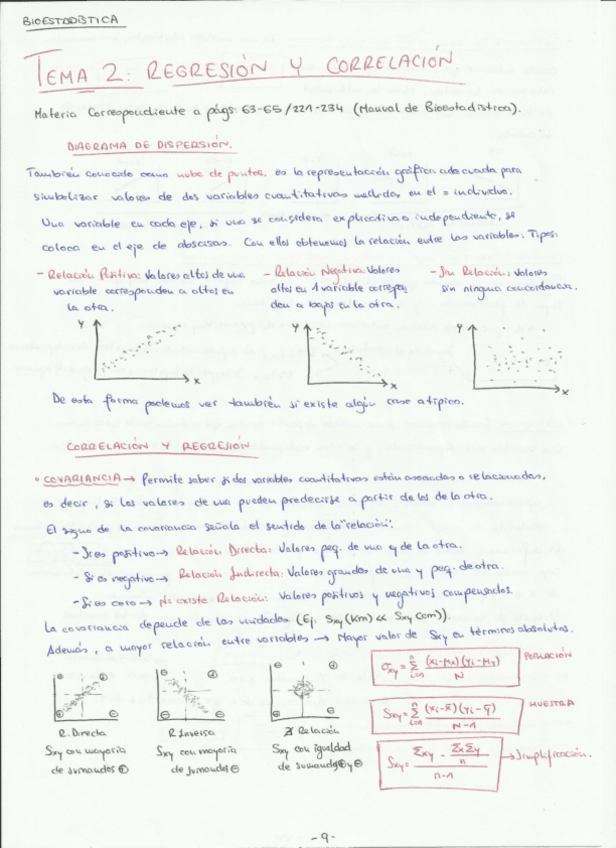 BIOESTADÍSTICA
TEMA 2: REGRESIÓN Y CORRELACIÓN
Materia Correspondiente a págs: 63-65/221-234 (Manual de Bioestadística).
DIAGRAMA DE DISPERSIÓN.
También conocido como nube de puntos, es la representación gráfica adecuada para
simbolizar valores de dos variables cuantitativas medidas en el = individuo.
Una variable en cada eje, si una se considera explicativa o independiente, se
coloca en el eje de abscisas. Con ellos obtenemos la relación entre las variables: Tipos:
- Relación Positiva: Valores altos de una
variable corresponden a altos en
la otra.
- Relación Negativa: Valores
altos en 1 variable correspon
den a bajos en la otra.
- Sin Relación: valores
sin ninguna concordancia.
Y
X
Y
X
Y
X
De esta forma podemos ver también si existe algún caso atípico.
CORRELACIÓN Y REGRESIÓN
• COVARIANCIA → Permite saber si dos variables cuantitativas están asociadas o relacionadas,
es decir, si los valores de una pueden predecirse a partir de los de la otra.
El signo de la covariancia señala el sentido de la "relación".
- Si es positivo → Relación Directa: Valores peq. de una y de la otra.
- Si es negativo → Relación Indirecta: Valores grandes de una y peq. de otra.
- Si es cero → No existe Relación: Valores positivos y negativos compensados.
La covariancia depende de las unidades (Ej. Sxy (Km) << Sxy (cm)).
Además, a mayor relación entre variables → Mayor valor de Sxy en términos absolutos.
σxy = Σ (i=1, n) (xi-μx)(yi-μy) / N
POBLACIÓN
Sxy = Σ (i=1, n) (xi-x̄)(yi-ȳ) / n-1
MUESTRA
Sxy = (Σxy - ΣxΣy / n) / n-1 → Simplificación.
R. Directa
Sxy con mayoría
de sumandos ⊕
R. Inversa
Sxy con mayoría
de sumandos ⊖
∄ Relación
Sxy con igualdad
de sumandos ⊕ y ⊖
- 9 -